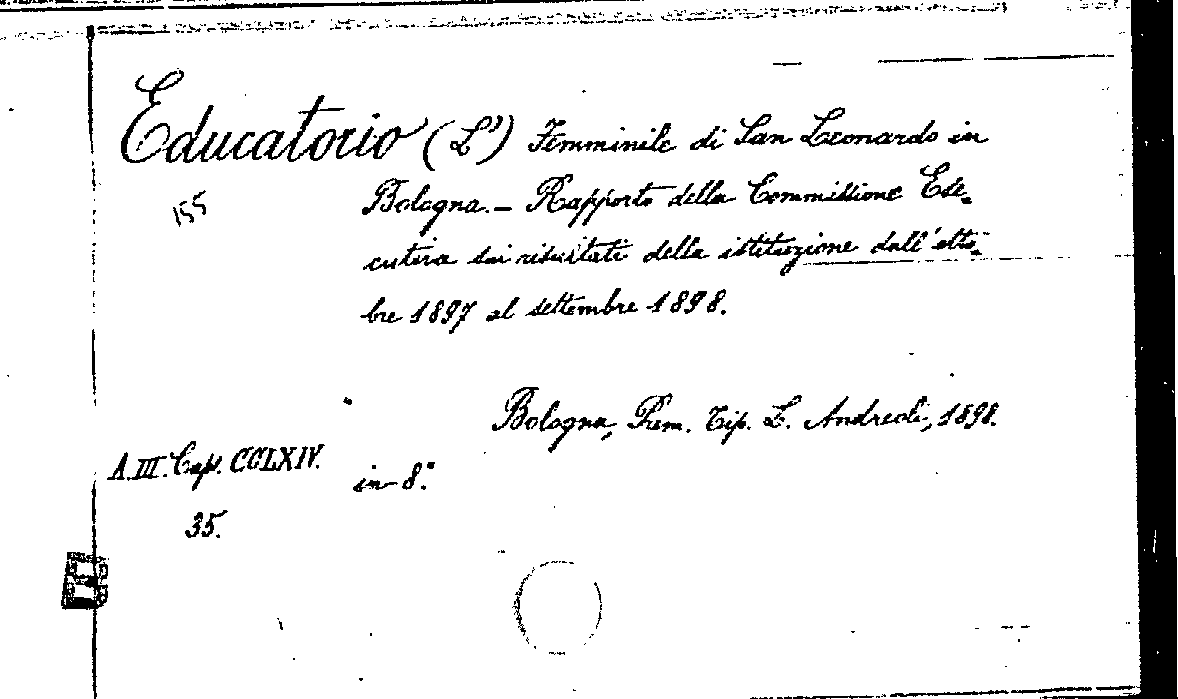 Educatorio (L') Femminile di San Leonardo in
155
Bologna. - Rapporto della Commissione Ese-
cutiva sui risultati della istituzione dall'otto-
bre 1897 al settembre 1898.
Bologna, Prem. Tip. L. Andreoli, 1898.
A.III. Caps. CCLXIV.
in-8.°
35.